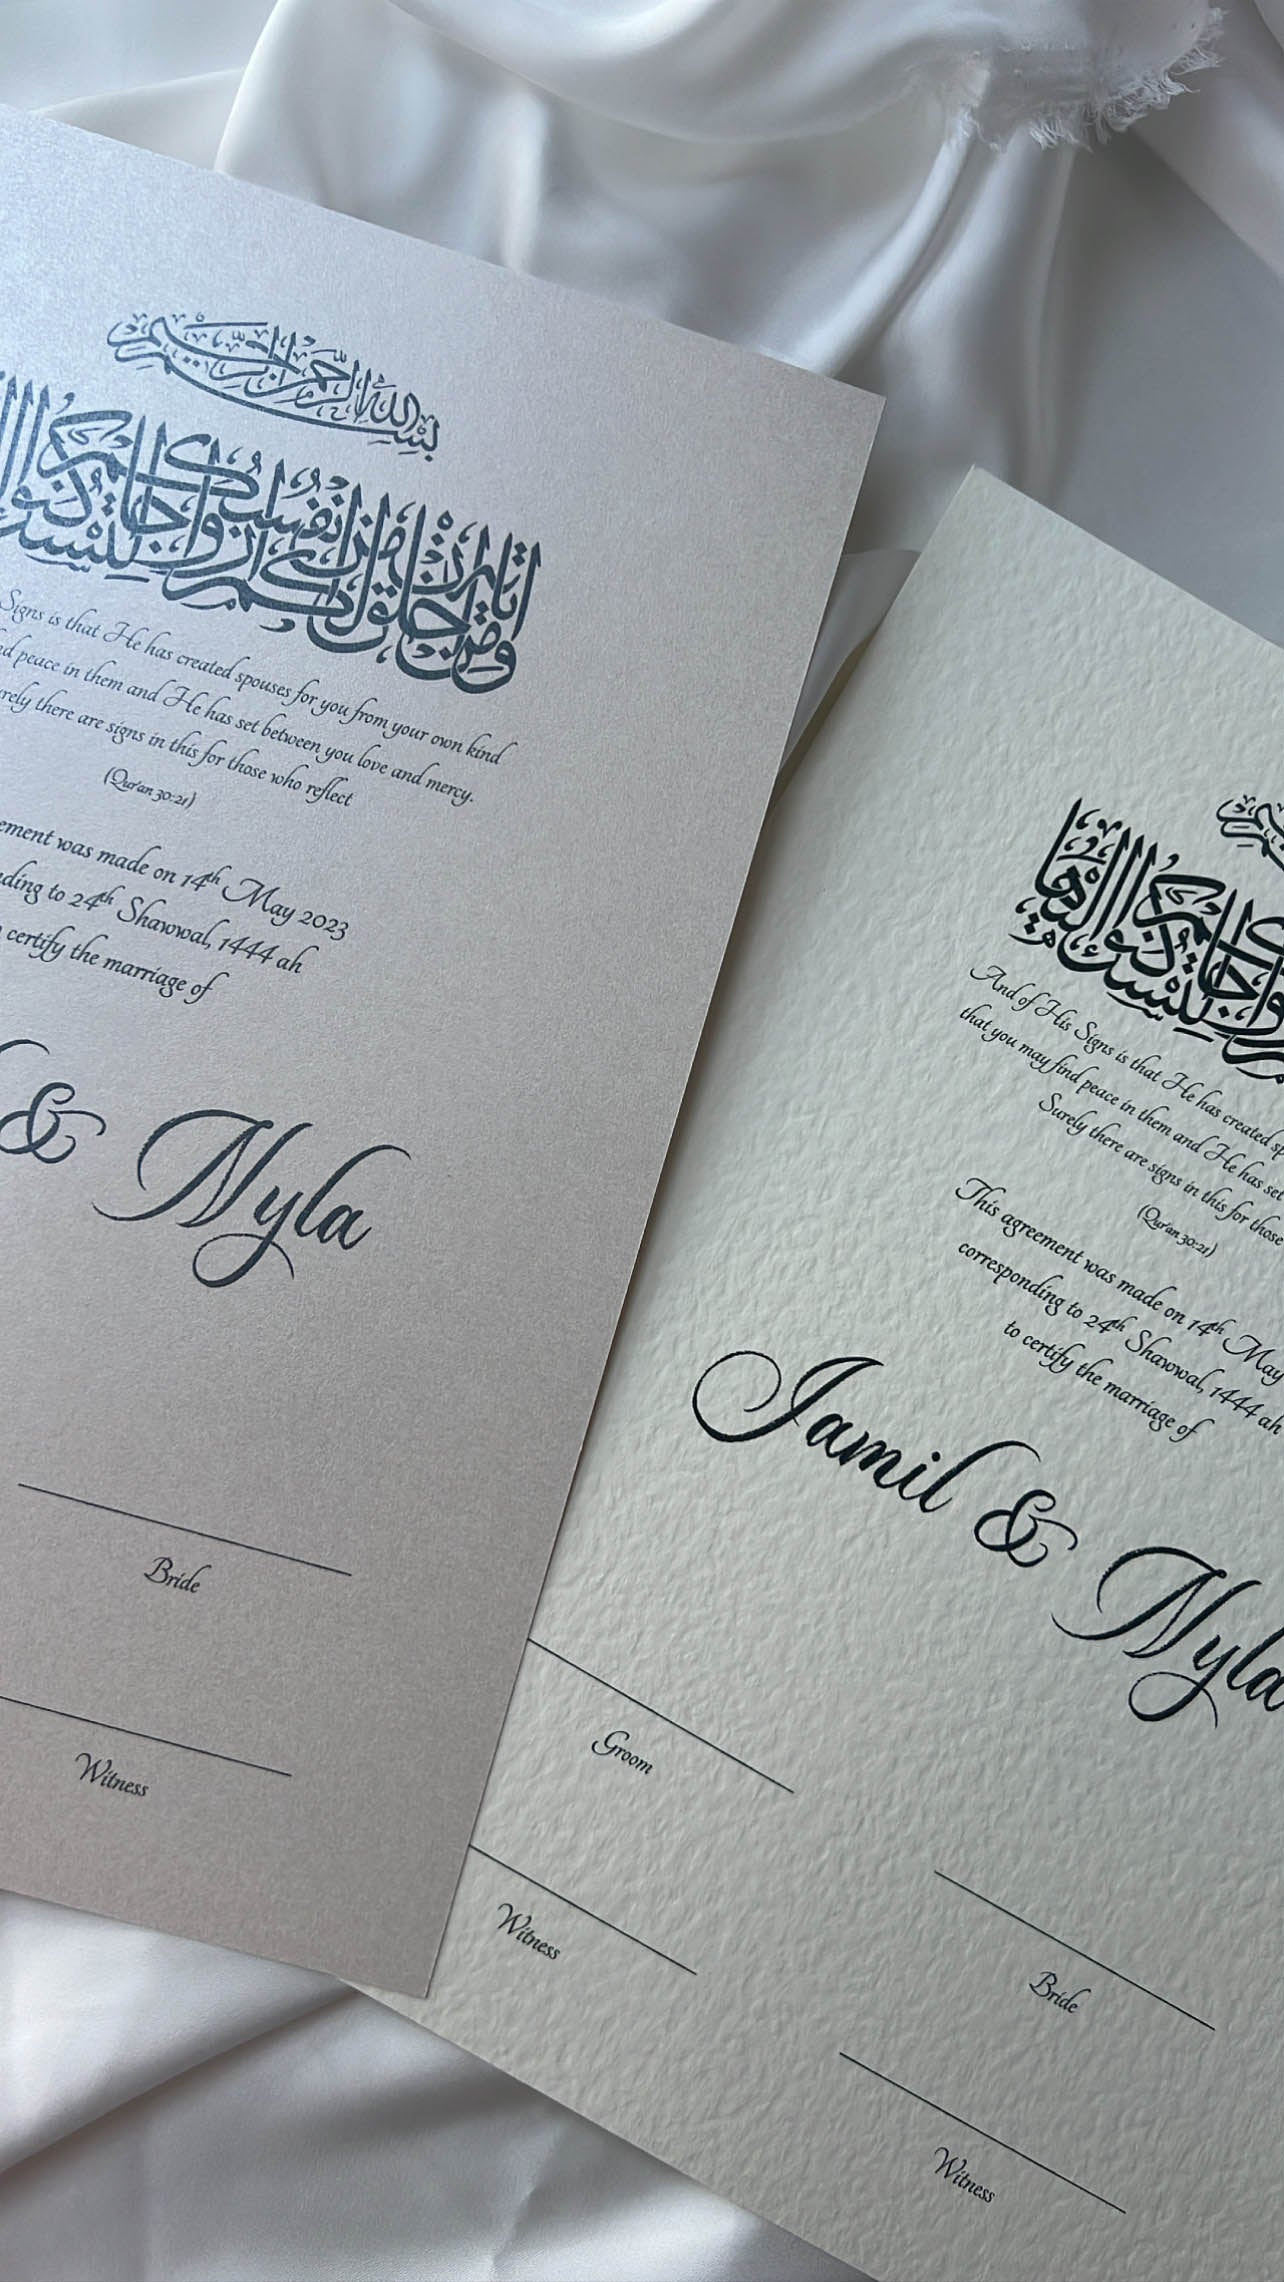 بسم الله الرحمن الرحيم
ومن آياته أن خلق لكم من أنفسكم أزواجا لتسكنوا
Signs is that He has created spouses for you from your own kind
d peace in them and He has set between you love and mercy.
rely there are signs in this for those who reflect
(Qur'an 30:21)
ement was made on 14th May 2023
nding to 24th Shawwal, 1444 ah
certify the marriage of
& Nyla
Bride
Witness
لتسكنوا إليها
And of His Signs is that He has created sp
that you may find peace in them and He has set
Surely there are signs in this for those
(Qur'an 30:21)
This agreement was made on 14th May
corresponding to 24th Shawwal, 1444 ah
to certify the marriage of
Jamil & Nyla
Groom
Bride
Witness
Witness